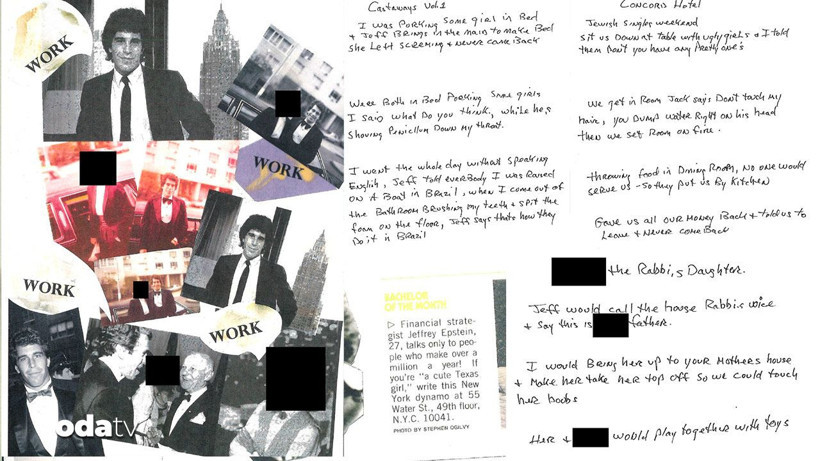 WORK
WORK
WORK
WORK
odatv
Castaways Vol.1
I was Porking Some girl in Bed
+ Jeff Brings in the maid to make Bed
She Left Screming + Never came Back
Were Both in Bed Porking Some girls
I said what Do you think, while he's
Shoving Penicllin Down my throat.
I went the whole day without speaking
English, Jeff told everbody I was Raised
on A Boat in Brazil, when I come out of
the Bathroom Brushing my teeth + spit the
foam on the floor, Jeff says thats how they
Do it in Brazil
BACHELOR
OF THE MONTH
▷ Financial strate-
gist Jeffrey Epstein,
27, talks only to peo-
ple who make over a
million a year! If
you're "a cute Texas
girl," write this New
York dynamo at 55
Water St., 49th floor,
N.Y.C. 10041.
PHOTO BY STEPHEN OGILVY
Concord Hotel
Jewish Singles weekend
Sit us Down at table with ugly girls + I told
them Don't you have any Pretty one's
We get in Room Jack says Don't touch my
Hair, you Dump water Right on his head
then we set Room on fire.
throwing food in Dining Room, No one would
serve us - So they put us By Kitchen
Gave us all our money Back + told us to
Leave + Never come Back
the Rabbi,s Daughter.
Jeff would call the house Rabbi,s voice
+ Say this is father.
I would Bring her up to your Mothers house
+ Make her take her top off so we could touch
her boobs
Her + would play together with toys